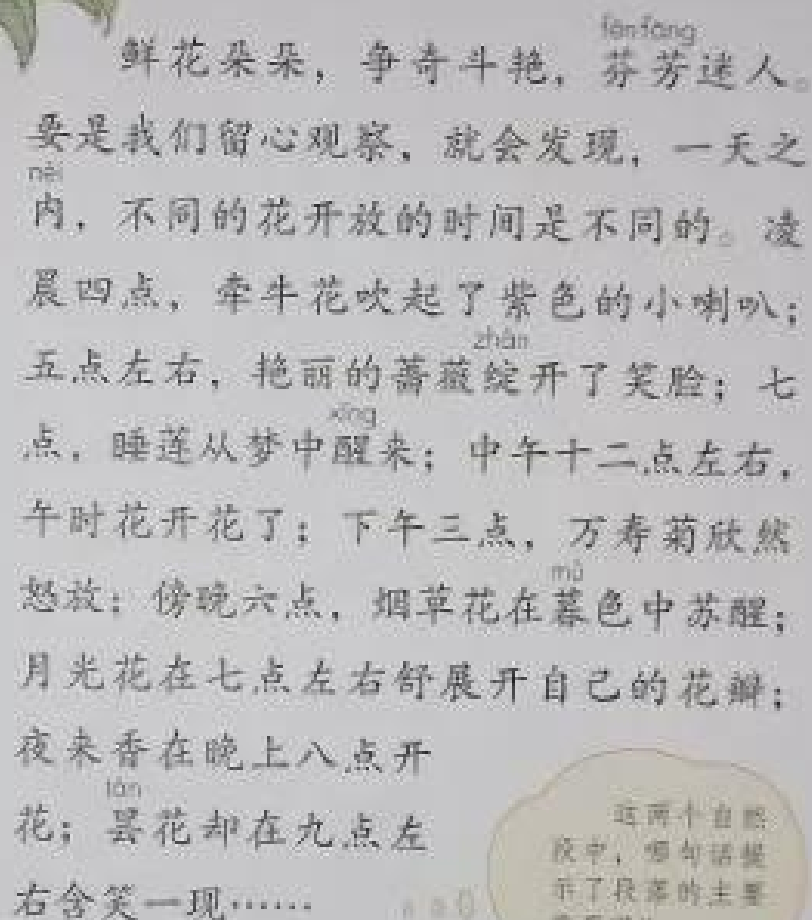 fēn fāng
鲜花朵朵，争奇斗艳，芬芳迷人。
要是我们留心观察，就会发现，一天之
nèi
内，不同的花开放的时间是不同的。凌
晨四点，牵牛花吹起了紫色的小喇叭；
zhàn
五点左右，艳丽的蔷薇绽开了笑脸；七
xǐng
点，睡莲从梦中醒来；中午十二点左右，
午时花开花了；下午三点，万寿菊欣然
mù
怒放；傍晚六点，烟草花在暮色中苏醒；
月光花在七点左右舒展开自己的花瓣；
夜来香在晚上八点开
tán
花；昙花却在九点左
右含笑一现……
这两个自然
段中，哪句话提
示了段落的主要